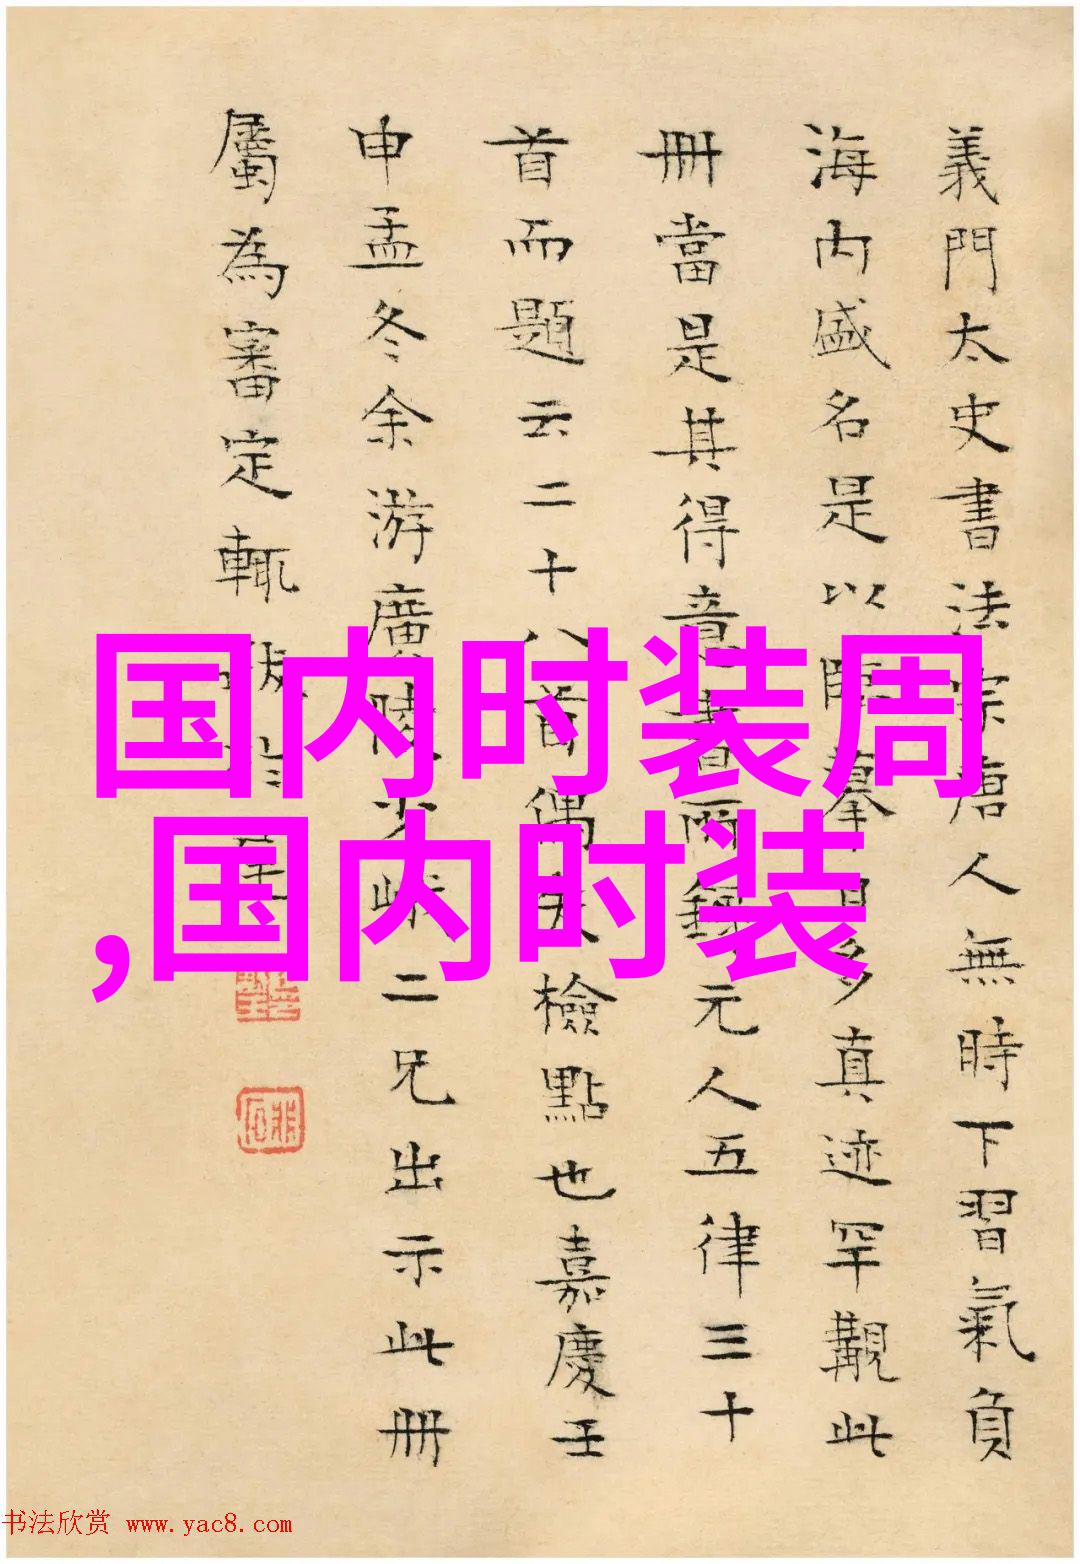 義門太史書法宗唐人無時下習氣負
海内盛名是以臨摹多真迹罕覯此
冊當是其得意書而錄元人五律三十
首而題云二十八首偶失檢點也嘉慶壬
申孟冬余游廣陵少二兄出示此冊
屬為審定輒
国内时装周
,国内时装
书法欣赏 www.yac8.com